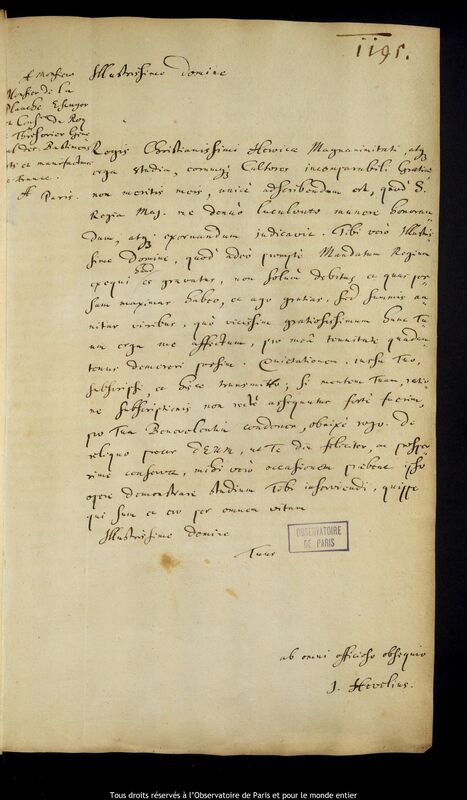 1195.
A Monsieur
Monsieur de la
Planche Escuyer
Cons. du Roy
Thresorier Gene
ral des Bastimens
et manufactures
France.
A Paris.
Illustrissime Domine
Regis Christianissimi Heroicæ Magnanimitati, atq;
erga studia, eorumq; Cultores incomparabili Gratiæ
non meritis meis, unicè adscribendum est, quod S.
Regia Maj. me denuò luculento munere honoran-
dum, atq; exornandum judicavit. Tibi verò Illustris-
sime Domine, quod adeò promptè Mandatum Regium
exequi haud gravatus, non solum debitas et quas pos-
sum maximas habeo, et ago gratias, sed summis an-
nitar viribus, quò vicissim gratiosissimum hunc Tu-
um erga me affectum, pro meâ tenuitate quada-
tenus demereri possim. Quietationem, jussu Tuo,
subscripsi, et hisce transmitto; si mentem Tuam, ratio-
ne subscriptionis non rectè assequutus fortè fuerim,
pro Tua Benevolentia condones, obnixè rogo. De
reliquo precor DEUM, ut Te diu feliciter, ac prospe-
rimè conservet, mihi verò occasionem præbeat, ipso
opere demonstrare studium Tibi inserviendi, quippe
qui sum et ero per omnem vitam
Illustrissime Domine
Tuus
OBSERVATOIRE
DE PARIS
ab omni officioso obsequio
J. Hevelius.
Tous droits réservés à l'Observatoire de Paris et pour le monde entier